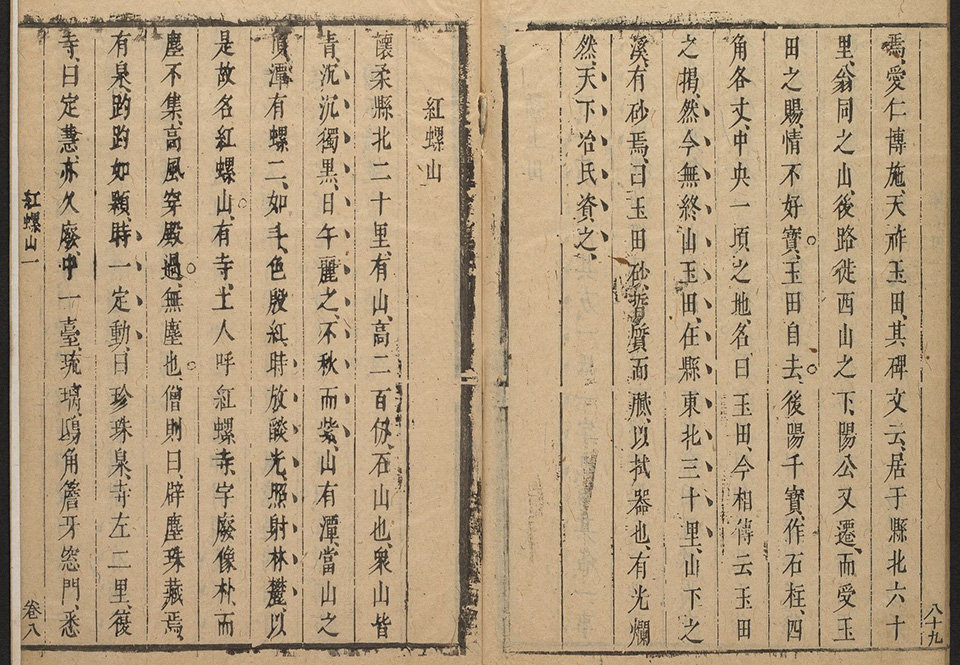 焉、愛仁博施、天祚玉田、其碑文云、居于縣北六十
里、翁同之山、後路徙西山之下、陽公又遷、而受玉
田之賜、情不好寶、玉田自去、後陽千寶、作石柱、四
角各丈、中央一頃之地、名曰玉田、今相傳云玉田
之揭、然今無終山玉田、在縣東北三十里、山下之
溪、有砂焉、曰玉田砂、堅質而燕、以拭器也、有光爛
然、天下冶氏資之、
八十九
紅螺山
懷柔縣北二十里、有山、高二百仞、石山也、衆山皆
青、沉沉獨黑、日午麗之、不秋而紫、山有潭、當山之
頂、潭有螺二、如斗、色殷紅、時放燄光、照射林麓、以
是故名紅螺山、有寺、土人呼紅螺寺、字廢像朴、而
塵不集、高風穿殿過、無塵也、僧則曰辟塵珠藏焉、
有泉、趵趵如顆、時一定動、曰珍珠泉、寺左二里、復
寺、曰定慧、亦久廢、中一臺、琉璃鴟角簷牙窓門、悉
紅螺山一
卷八